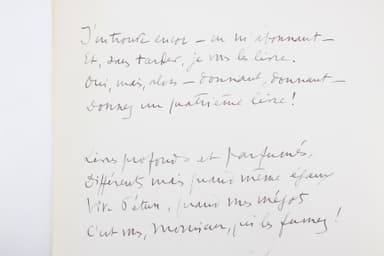 J'en trouve encor – en m'abonnant –
Et, sans tarder, je vous les livre.
Oui, mais, alors – donnant, donnant –
Donnez un quatrième livre !
Livres profonds et parfumés,
Différents mais quand même égaux
Vive Pétun, quand vos mégots
C'est vous, Monsieur, qui les fumez !